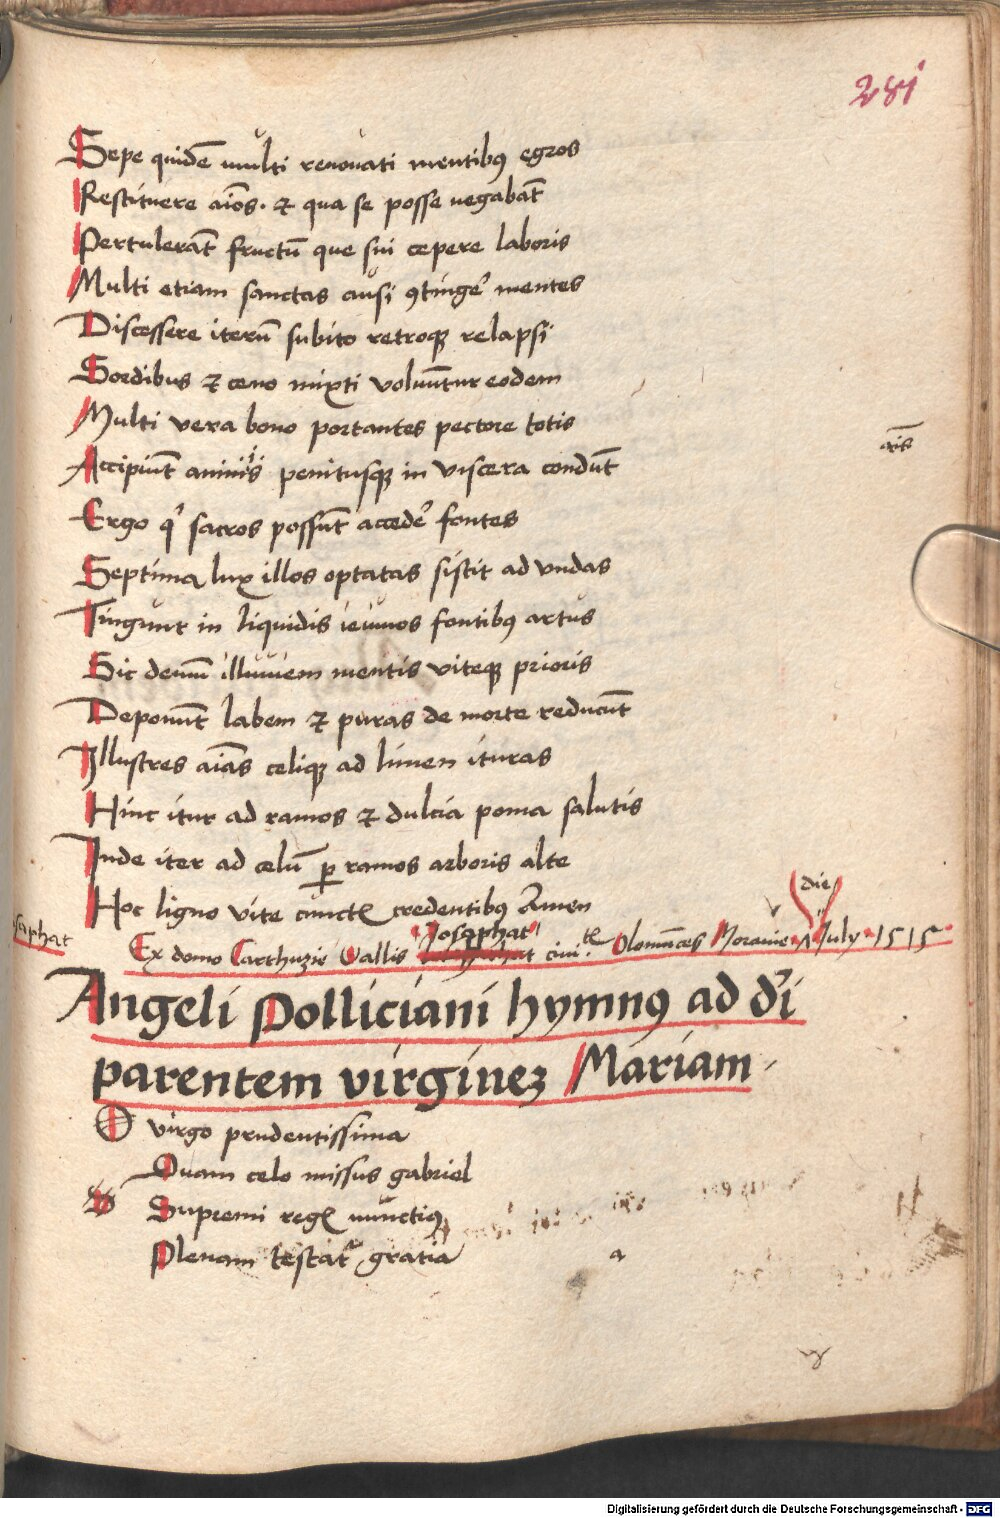 281
Sepe quidē multi renouati mentibꝰ egros
Restituere aīos. & qua se posse negabāt
Pertulerāt fructū que sui cepere laboris
Multi etiam sanctas ausi ꝯtingeˀ mentes
Discessere iterū subito retroqꝫ relapsi
Sordibus & ceno mixti voluūtur eodem
Multi vera bono portantes pectore totis
Accipiūt animis penitusqꝫ in viscera condūt
Ergo qͥ sacros possūt accedeˀ fontes
Septima lux illos optatas sistit ad vndas
Tingunt in liquidis ieiunos fontibꝰ artus
Sic demū illuuiem mentis viteqꝫ prioris
Deponūt labem & puras de morte reducūt
Illustres aīas celiqꝫ ad limen ituras
Hinc itur ad ramos & dulcia poma salutis
Inde iter ad celū ꝑ ramos arboris alte
Hoc ligno vite cunctꝭ credentibꝰ Amen
die
Josaphat
Ex domo Carthuzie Vallis ciuiᵗᵉ Olomucēs Morauie July 1515
Angeli Polliciani hymnꝰ ad dˀi
parentem virgineꝫ Mariam
O virgo prudentissima
Quam celo missus gabriel
Supremi regꝭ nunctiꝰ
Plenam testatᷣ gratia
Digitalisierung gefördert durch die Deutsche Forschungsgemeinschaft - DFG